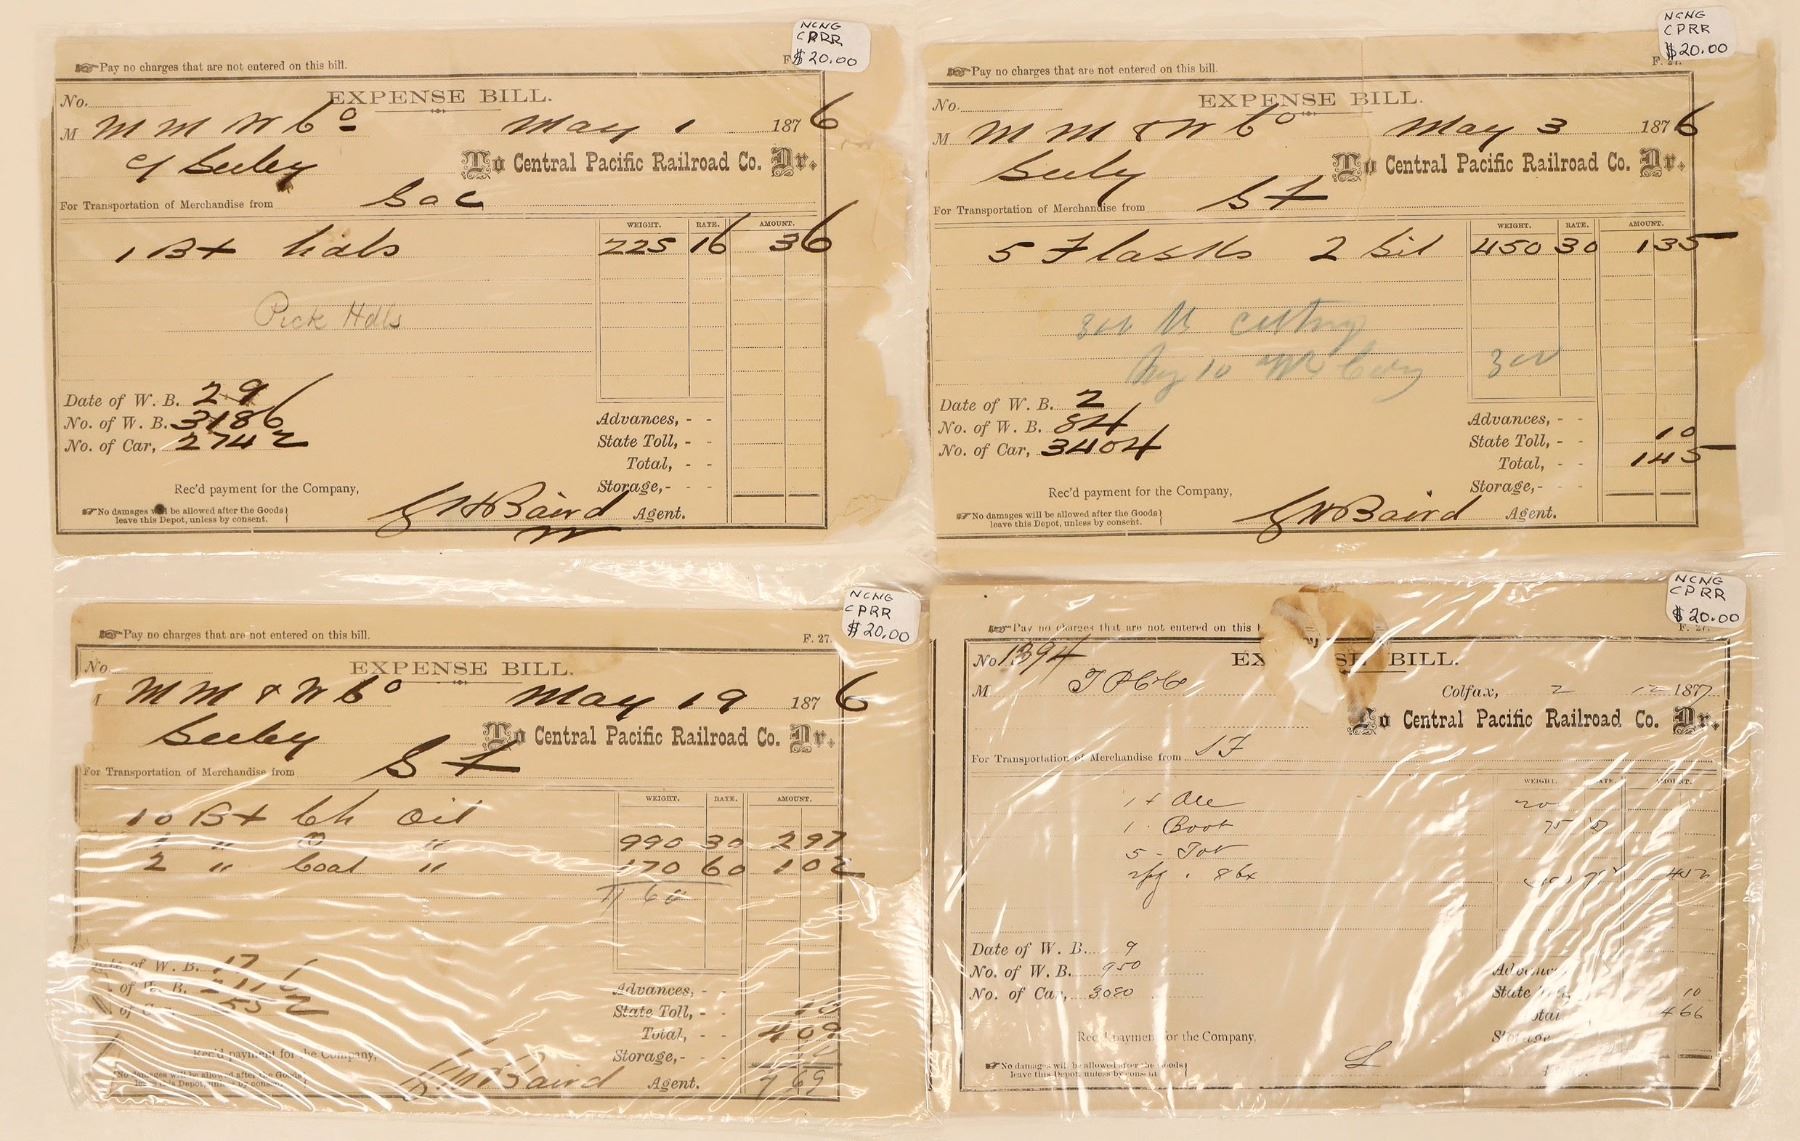 NCNG
CPRR
$20.00
Pay no charges that are not entered on this bill.
No.
EXPENSE BILL.
M M M W Co May 1 1876
Seeley
To Central Pacific Railroad Co. Dr.
For Transportation of Merchandise from Sac
WEIGHT. RATE. AMOUNT.
1 Bx hdls 225 16 36
Pick Hdls
Date of W. B. 29
No. of W. B. 3186
No. of Car, 2742
Advances, - -
State Toll, - -
Total, - -
Storage, - - -
Rec'd payment for the Company,
No damages will be allowed after the Goods
leave this Depot, unless by consent.
GW Baird Agent.
NCNG
CPRR
$20.00
Pay no charges that are not entered on this bill.
F. 27.
No.
EXPENSE BILL.
M M M & W Co May 3 1876
Seely
To Central Pacific Railroad Co. Dr.
For Transportation of Merchandise from S F
WEIGHT. RATE. AMOUNT.
5 Flasks 2 Sil 450 30 135
300
Date of W. B. 2
No. of W. B. 84
No. of Car, 3404
Advances, - -
State Toll, - - 10
Total, - - 145
Storage, - - -
Rec'd payment for the Company,
No damages will be allowed after the Goods
leave this Depot, unless by consent.
GW Baird Agent.
NCNG
CPRR
$20.00
Pay no charges that are not entered on this bill.
F. 27.
No.
EXPENSE BILL.
M M & W Co May 19 1876
Seeley
To Central Pacific Railroad Co. Dr.
For Transportation of Merchandise from S F
WEIGHT. RATE. AMOUNT.
10 Bx Ch Oil
" " 990 30 297
2 " Coal " 170 60 102
1160
of W. B. 17
of W. B.
of Car
Advances, - -
State Toll, - - 10
Total, - - 409
Storage, - - -
Rec'd payment for the Company,
No damages will be allowed after the Goods
leave this Depot, unless by consent.
GW Baird Agent.
769
NCNG
CPRR
$20.00
Pay no charges that are not entered on this
No 1394
EX SE BILL.
M Colfax, 2 12 1877
To Central Pacific Railroad Co. Dr.
For Transportation of Merchandise from S F
WEIGHT. RATE. AMOUNT.
1 Ale
1 Boot 75
5 Tob
8 bx
Date of W. B. 9
No. of W. B. 950
No. of Car, 3080
Advances
State Toll 10
Total 466
Storage
Rec'd payment for the Company,
No damages will be allowed after the Goods
leave this Depot, unless by consent